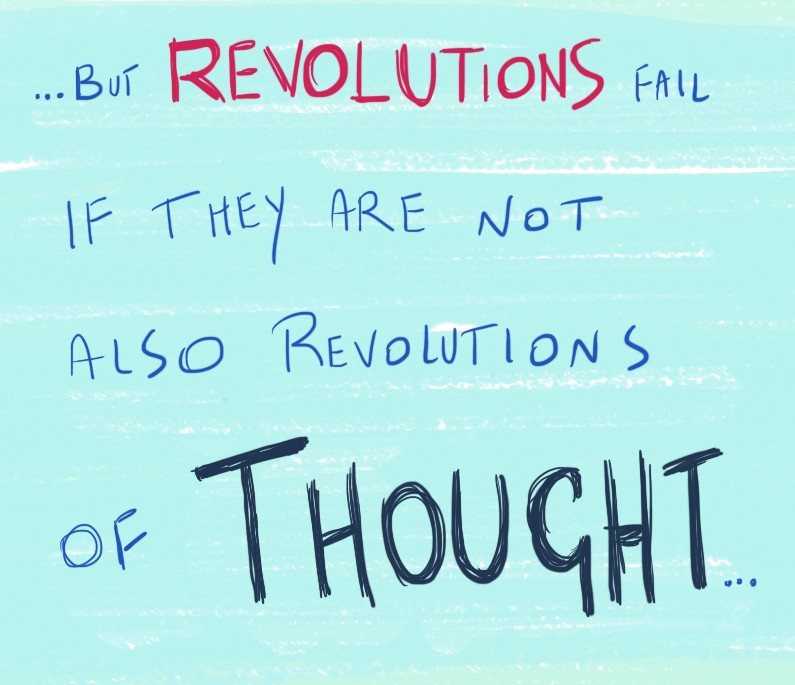 ...BUT REVOLUTIONS FAIL
IF THEY ARE NOT
ALSO REVOLUTIONS
OF THOUGHT...